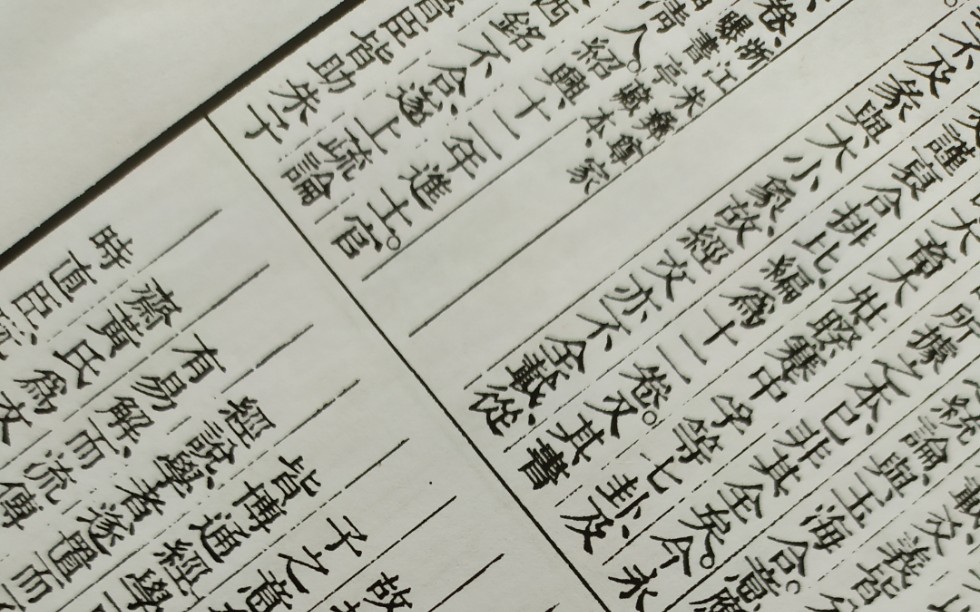 義皆
統論與玉海合。
所據之本已非其全矣。今永
大畜大壯睽蹇中孚等七卦及
謹裒合排比編爲十二卷。又其書
不及象與大小象故經文亦不全載從
卷浙江朱彝尊家
曝書亭藏本
人。紹興十二年進士官。
西銘不合遂上疏論
官臣皆助朱子
故
子之意
皆博通經學
經說學者遂置而
有易解而流傳
齋黃氏爲文
時直臣